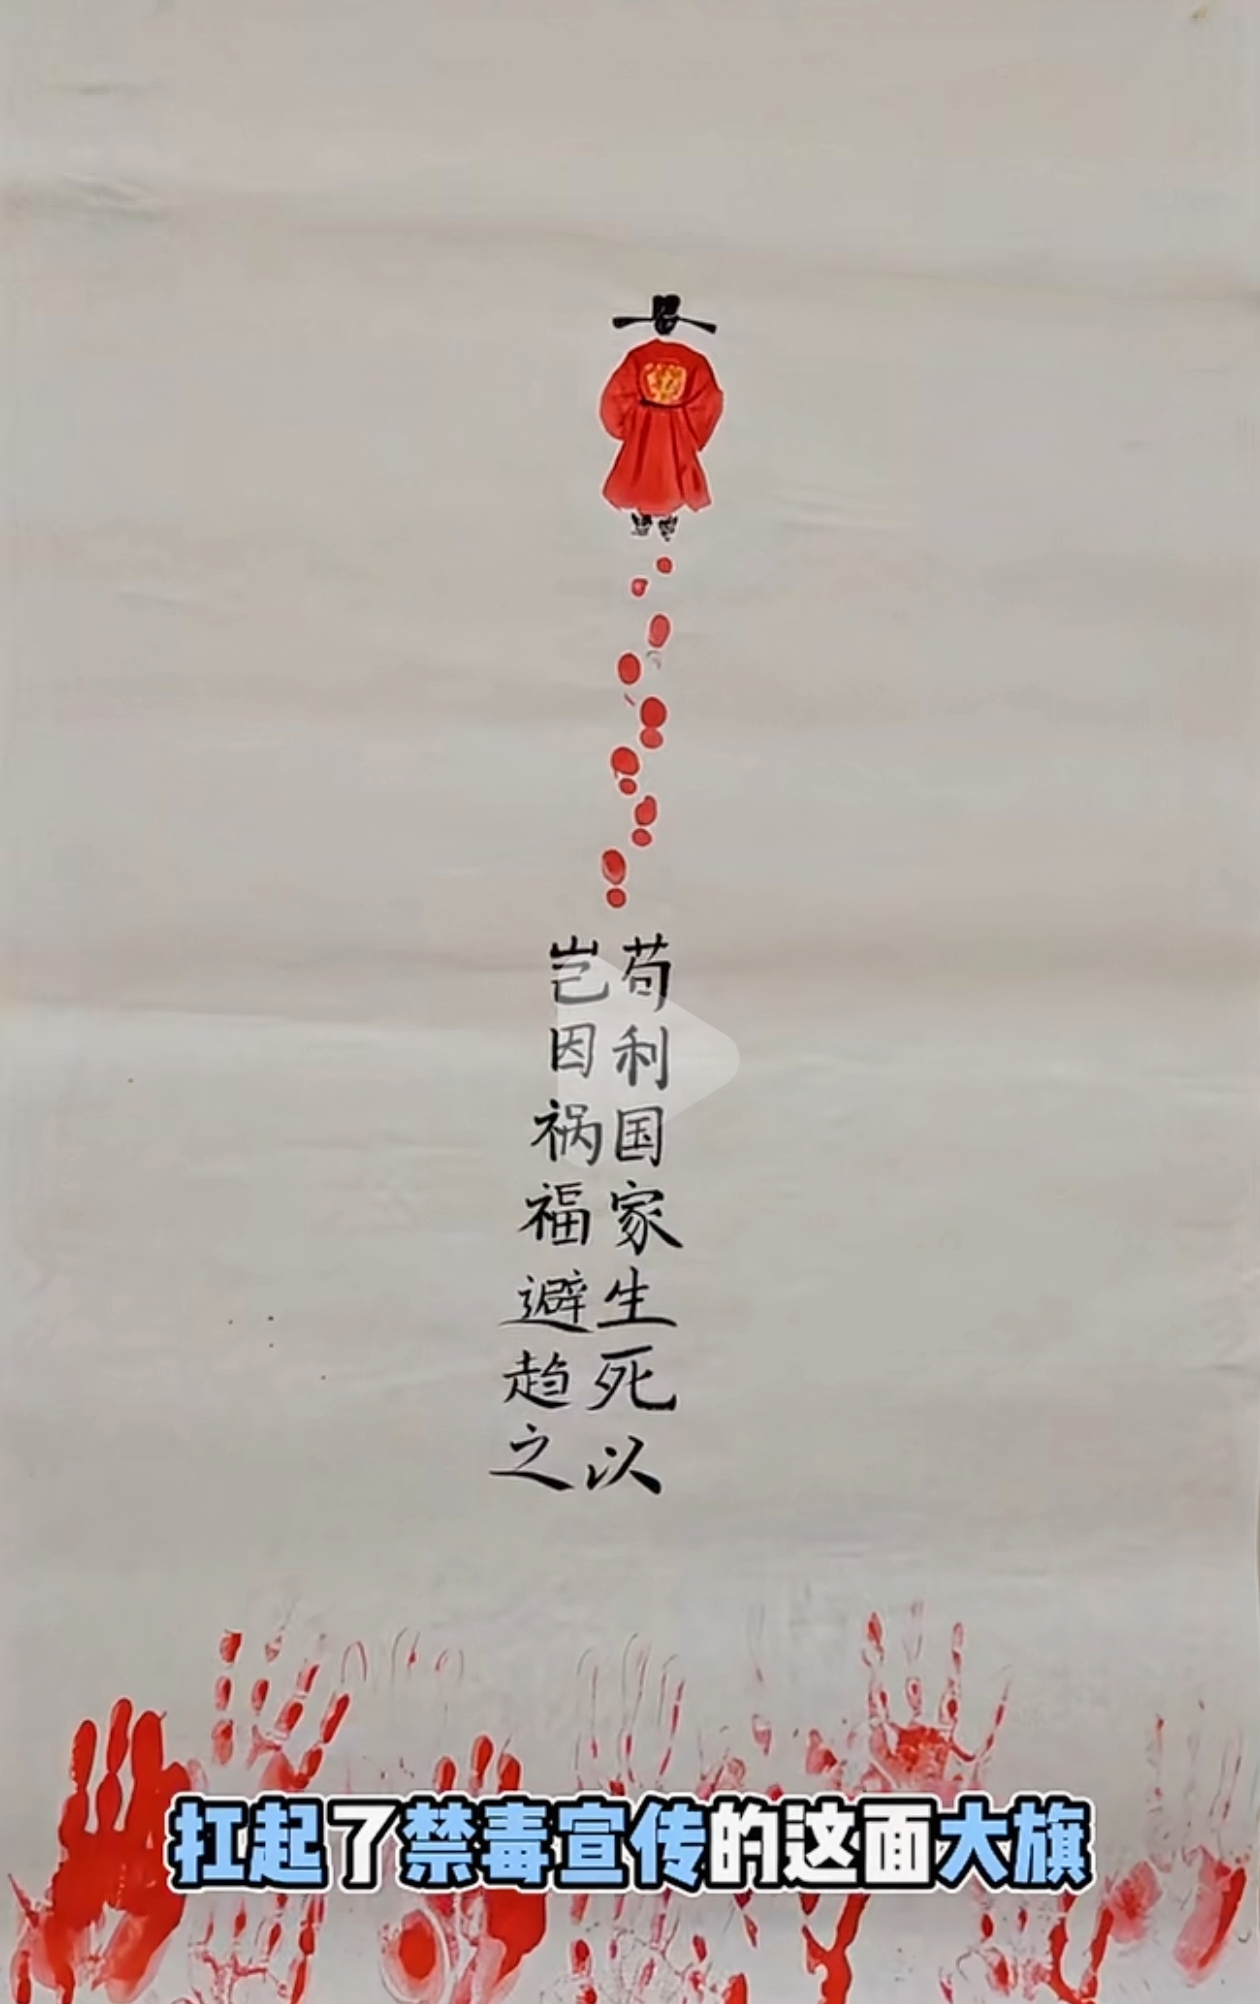 苟利国家生死以
岂因祸福避趋之
扛起了禁毒宣传的这面大旗